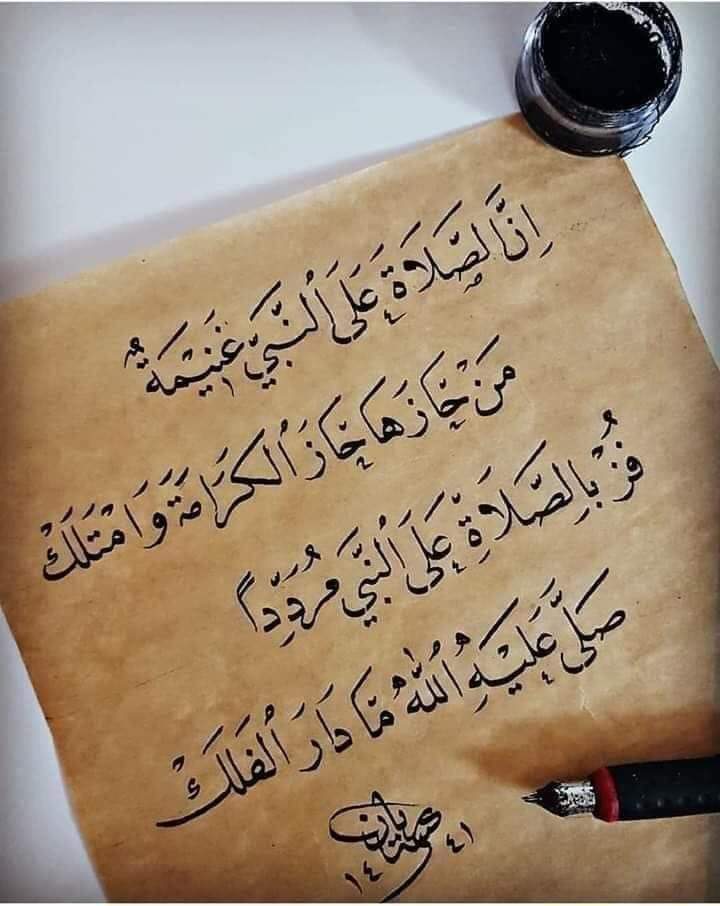 اِنَّ الصَّلَاةَ عَلَى النَّبِيِّ غَنِيْمَةٌ
مَنْ حَازَهَا حَازَ الْكَرَامَةَ وَامْتَلَكْ
فُزْ بِالصَّلَاةِ عَلَى النَّبِيِّ مُرَدِّدًا
صَلَّى عَلَيْهِ اللّٰهُ مَا دَارَ الْفَلَكْ
١٤٤١